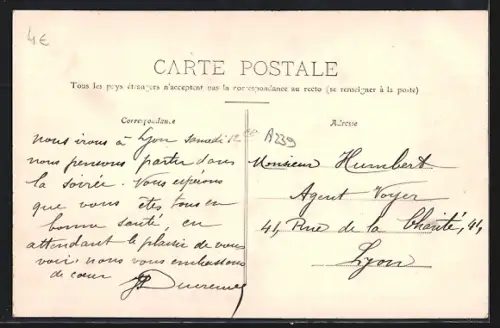 4€
CARTE POSTALE
Tous les pays étrangers n'acceptent pas la correspondance au recto (se renseigner à la poste)
Correspondance
Adresse
A239
nous irons à Lyon samedi
nous pensons partir dans
la soirée. Vous espérons
que vous êtes tous en
bonne santé, en
attendant le plaisir de vous
voir. nous vous embrassons
de cœur
Monsieur Humbert
Agent Voyer
41, Rue de la Charité, 41,
Lyon